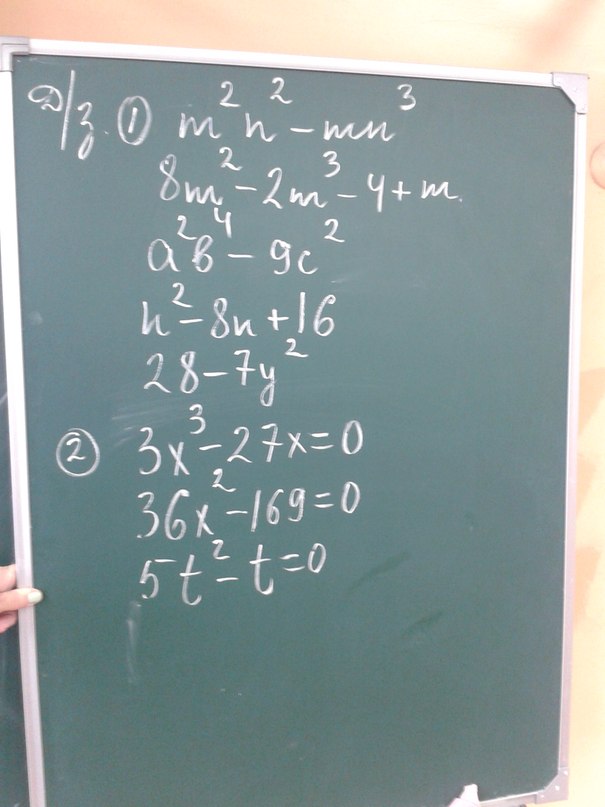 Д/з. ① m²n² - mn³
8m² - 2m³ - 4 + m.
a²b⁴ - 9c²
n² - 8n + 16
28 - 7y²
② 3x³ - 27x = 0
36x² - 169 = 0
5t² - t = 0